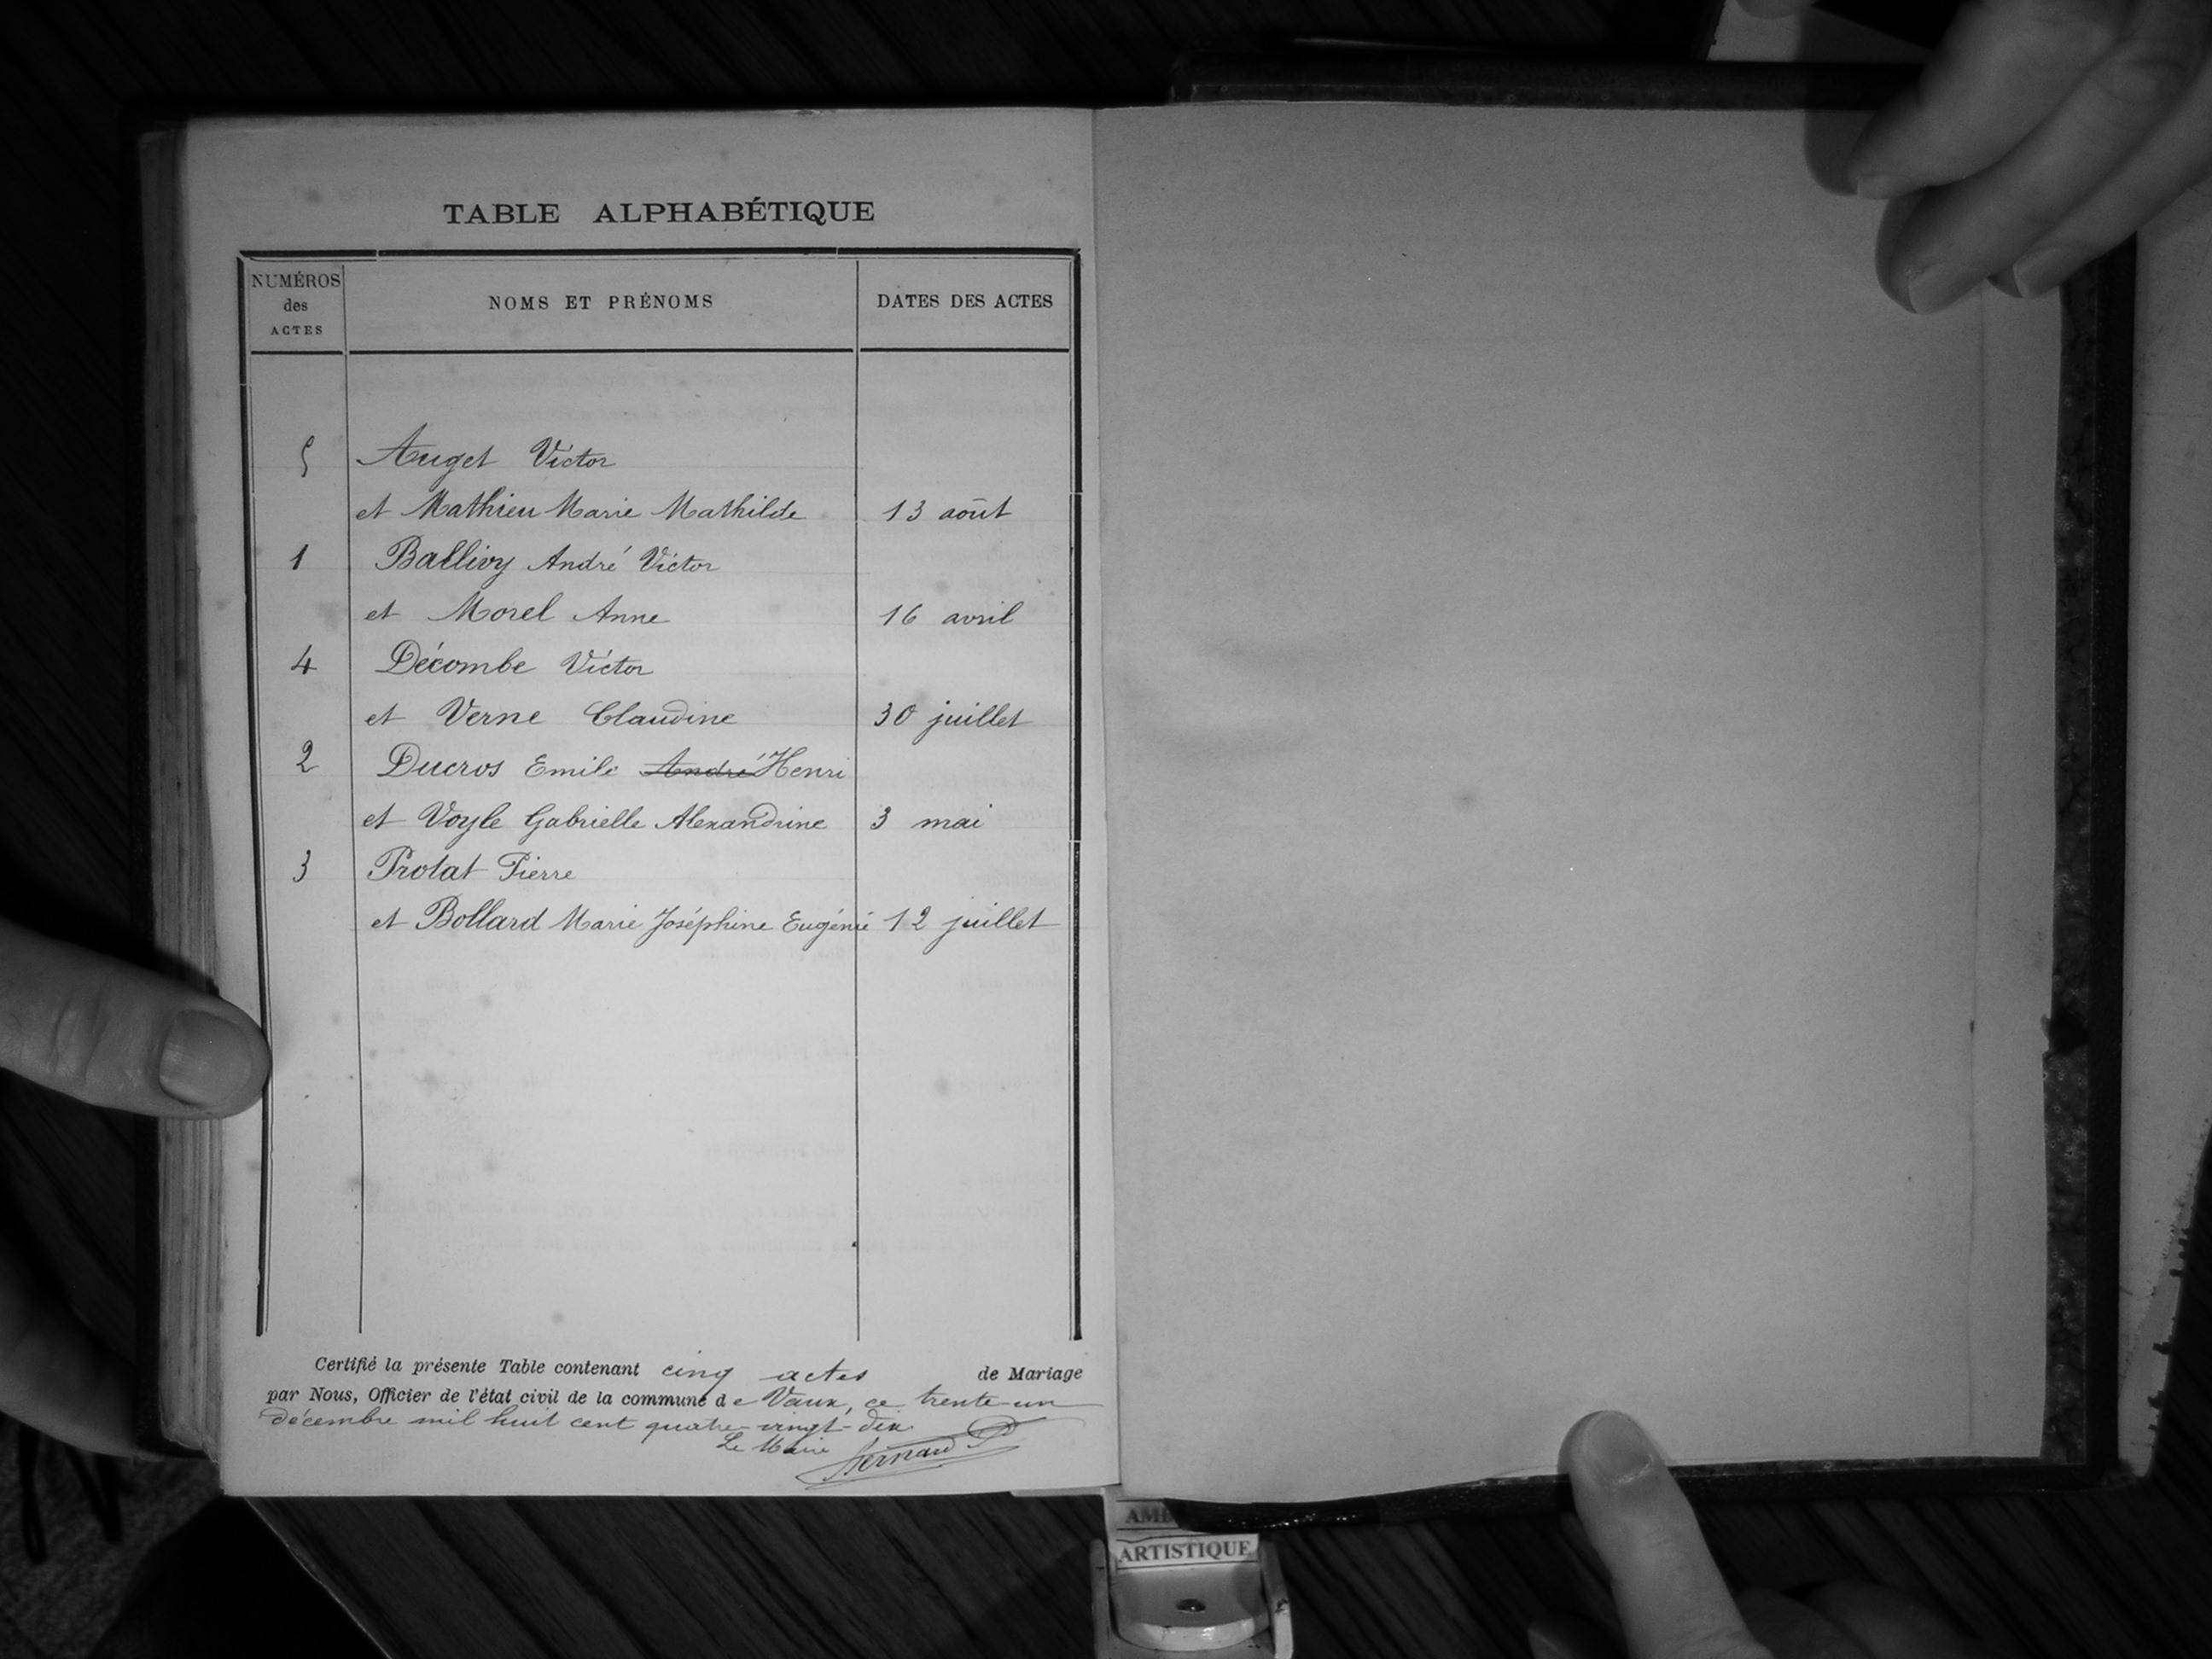 TABLE ALPHABÉTIQUE
NUMÉROS
des
ACTES
NOMS ET PRÉNOMS
DATES DES ACTES
5 Auget Victor
et Mathieu Marie Mathilde 13 août
1 Ballivy André Victor
et Morel Anne 16 avril
4 Décombe Victor
et Verne Claudine 30 juillet
2 Ducros Emile André Henri
et Voyle Gabrielle Alexandrine 3 mai
3 Protat Pierre
et Bollard Marie Joséphine Eugénie 12 juillet
Certifié la présente Table contenant cinq actes de Mariage
par Nous, Officier de l'état civil de la commune de Vaux, ce trente-un
décembre mil huit cent quatre-vingt-dix
Le Maire
ARTISTIQUE